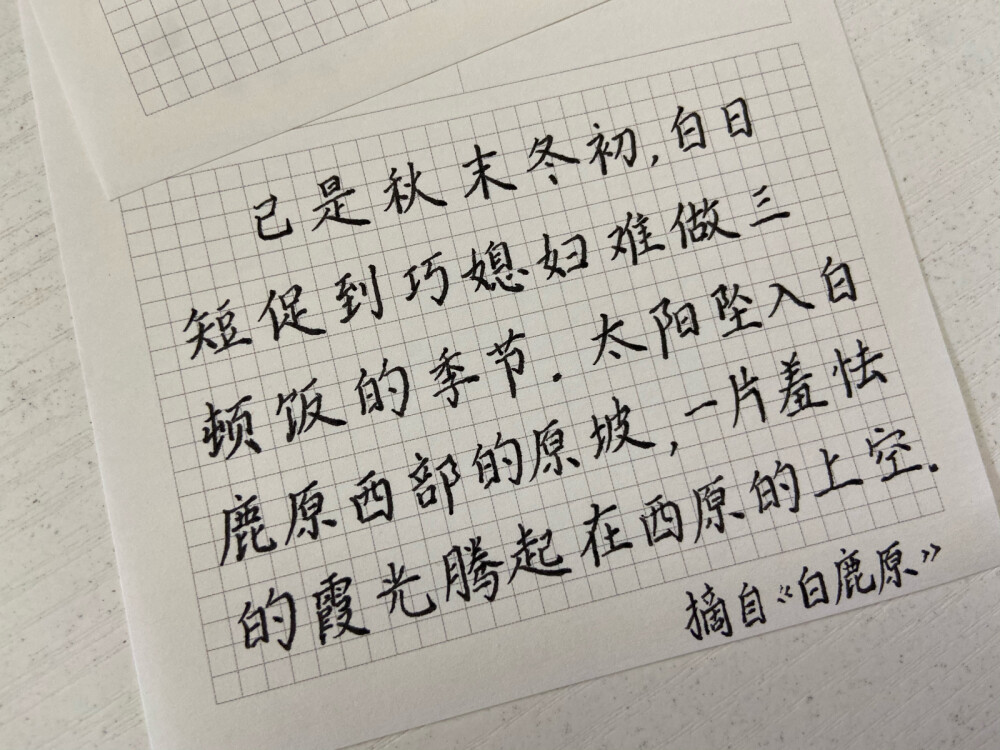 已是秋末冬初,白日
短促到巧媳妇难做三
顿饭的季节.太阳坠入白
鹿原西部的原坡,一片羞怯
的霞光腾起在西原的上空.
摘自《白鹿原》